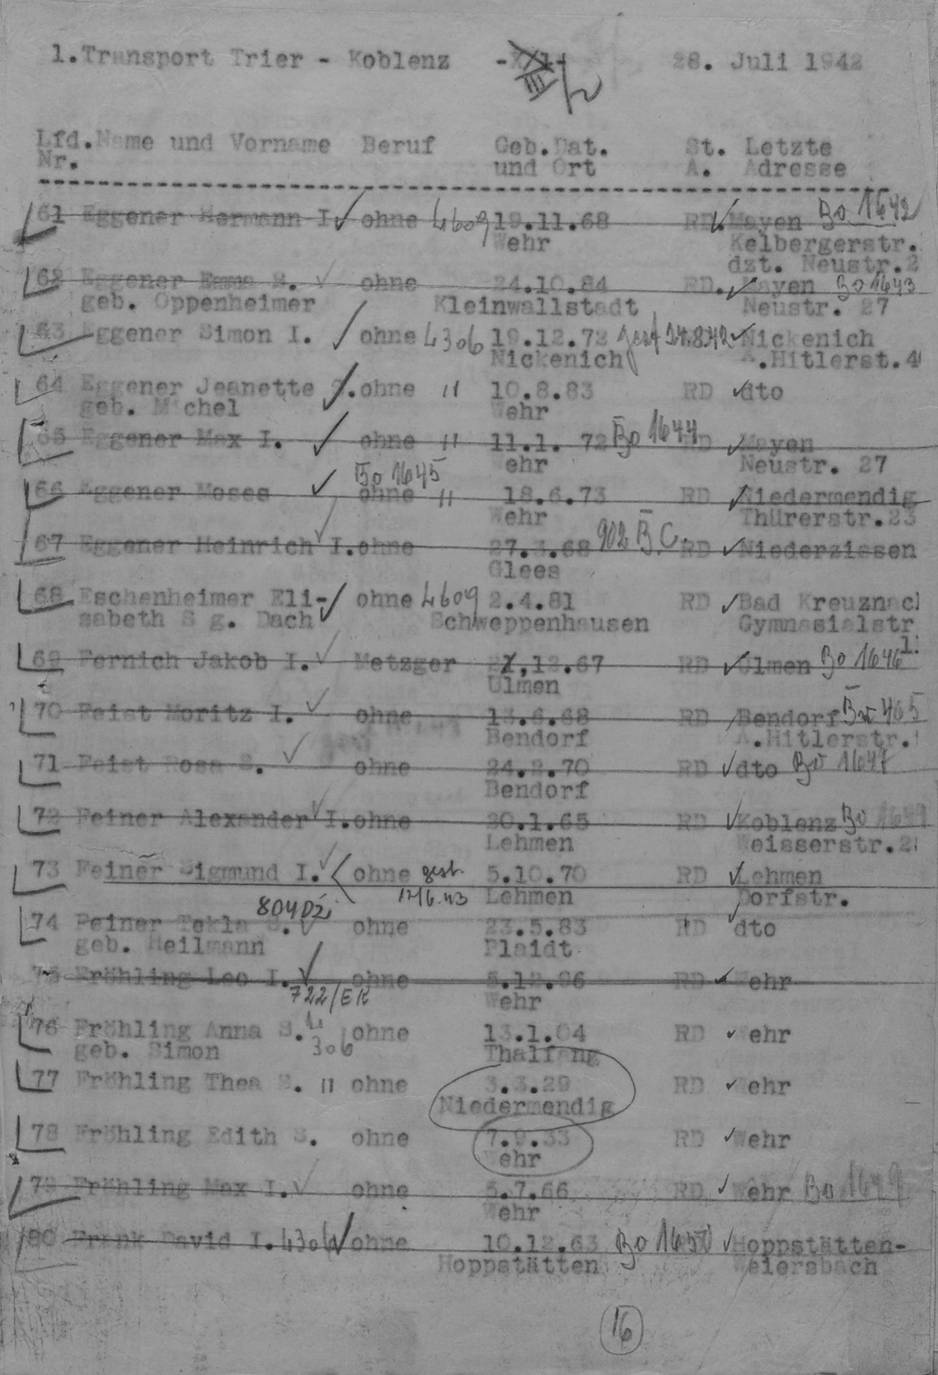 1.Transport Trier - Koblenz - III/2 28. Juli 1942
Lfd. Name und Vorname Beruf Geb.Dat. St. Letzte
Nr. und Ort A. Adresse
61 Eggener Hermann I. ohne 4609 19.11.68 RD Mayen Bo 1642
Wehr Kelbergerstr.
dzt. Neustr.2
62 Eggener Emma S. ohne 24.10.84 RD. Mayen Bo 1643
geb. Oppenheimer Kleinwallstadt Neustr. 27
63 Eggener Simon I. ohne 4306 19.12.72 gest 24.8.42 Nickenich
Nickenich A.Hitlerst.4
64 Eggener Jeanette S. ohne " 10.8.83 RD dto
geb. Michel Wehr
65 Eggener Max I. ohne " 11.1. 72 Bo 1644 RD Mayen
Wehr Neustr. 27
Bo 1645
66 Eggener Moses ohne " 18.6.73 RD Niedermendig
Wehr Thürerstr.23
67 Eggener Heinrich I.ohne 27.3.68 902 B.C. RD Niederzissen
Glees
68 Eschenheimer Eli- ohne 4609 2.4.81 RD Bad Kreuznach
sabeth S g. Dach Schweppenhausen Gymnasialstr
69 Fernich Jakob I. Metzger 12.67 RD Ulmen Bo 1646 1.
Ulmen
70 Feist Moritz I. ohne 13.6.68 RD Bendorf 465
Bendorf A.Hitlerstr.
71 Feist Rosa S. ohne 24.2.70 RD dto Bo 1647
Bendorf
72 Feiner Alexander I.ohne 20.1.65 RD Koblenz Bo
Lehmen Weisserstr.2
73 Feiner Sigmund I. ohne gest. 5.10.70 RD Lehmen
17/6.43 Lehmen Dorfstr.
804 DZ
74 Feiner Tekla S. ohne 23.5.83 RD dto
geb. Heilmann Plaidt
75 Fröhling Leo I. ohne 5.12.96 RD Wehr
722/EK Wehr
76 Fröhling Anna S. ohne 13.1.04 RD Wehr
geb. Simon 306 Thalfang
77 Fröhling Thea S. " ohne 3.3.29 RD Wehr
Niedermendig
78 Fröhling Edith S. ohne 7.9.33 RD Wehr
Wehr
79 Fröhling Max I. ohne 5.7.66 RD Wehr Bo 1649
Wehr
80 Frank David I. 4306 ohne 10.12.63 Bo 1650 Hoppstätten-
Hoppstätten Weiersbach
16